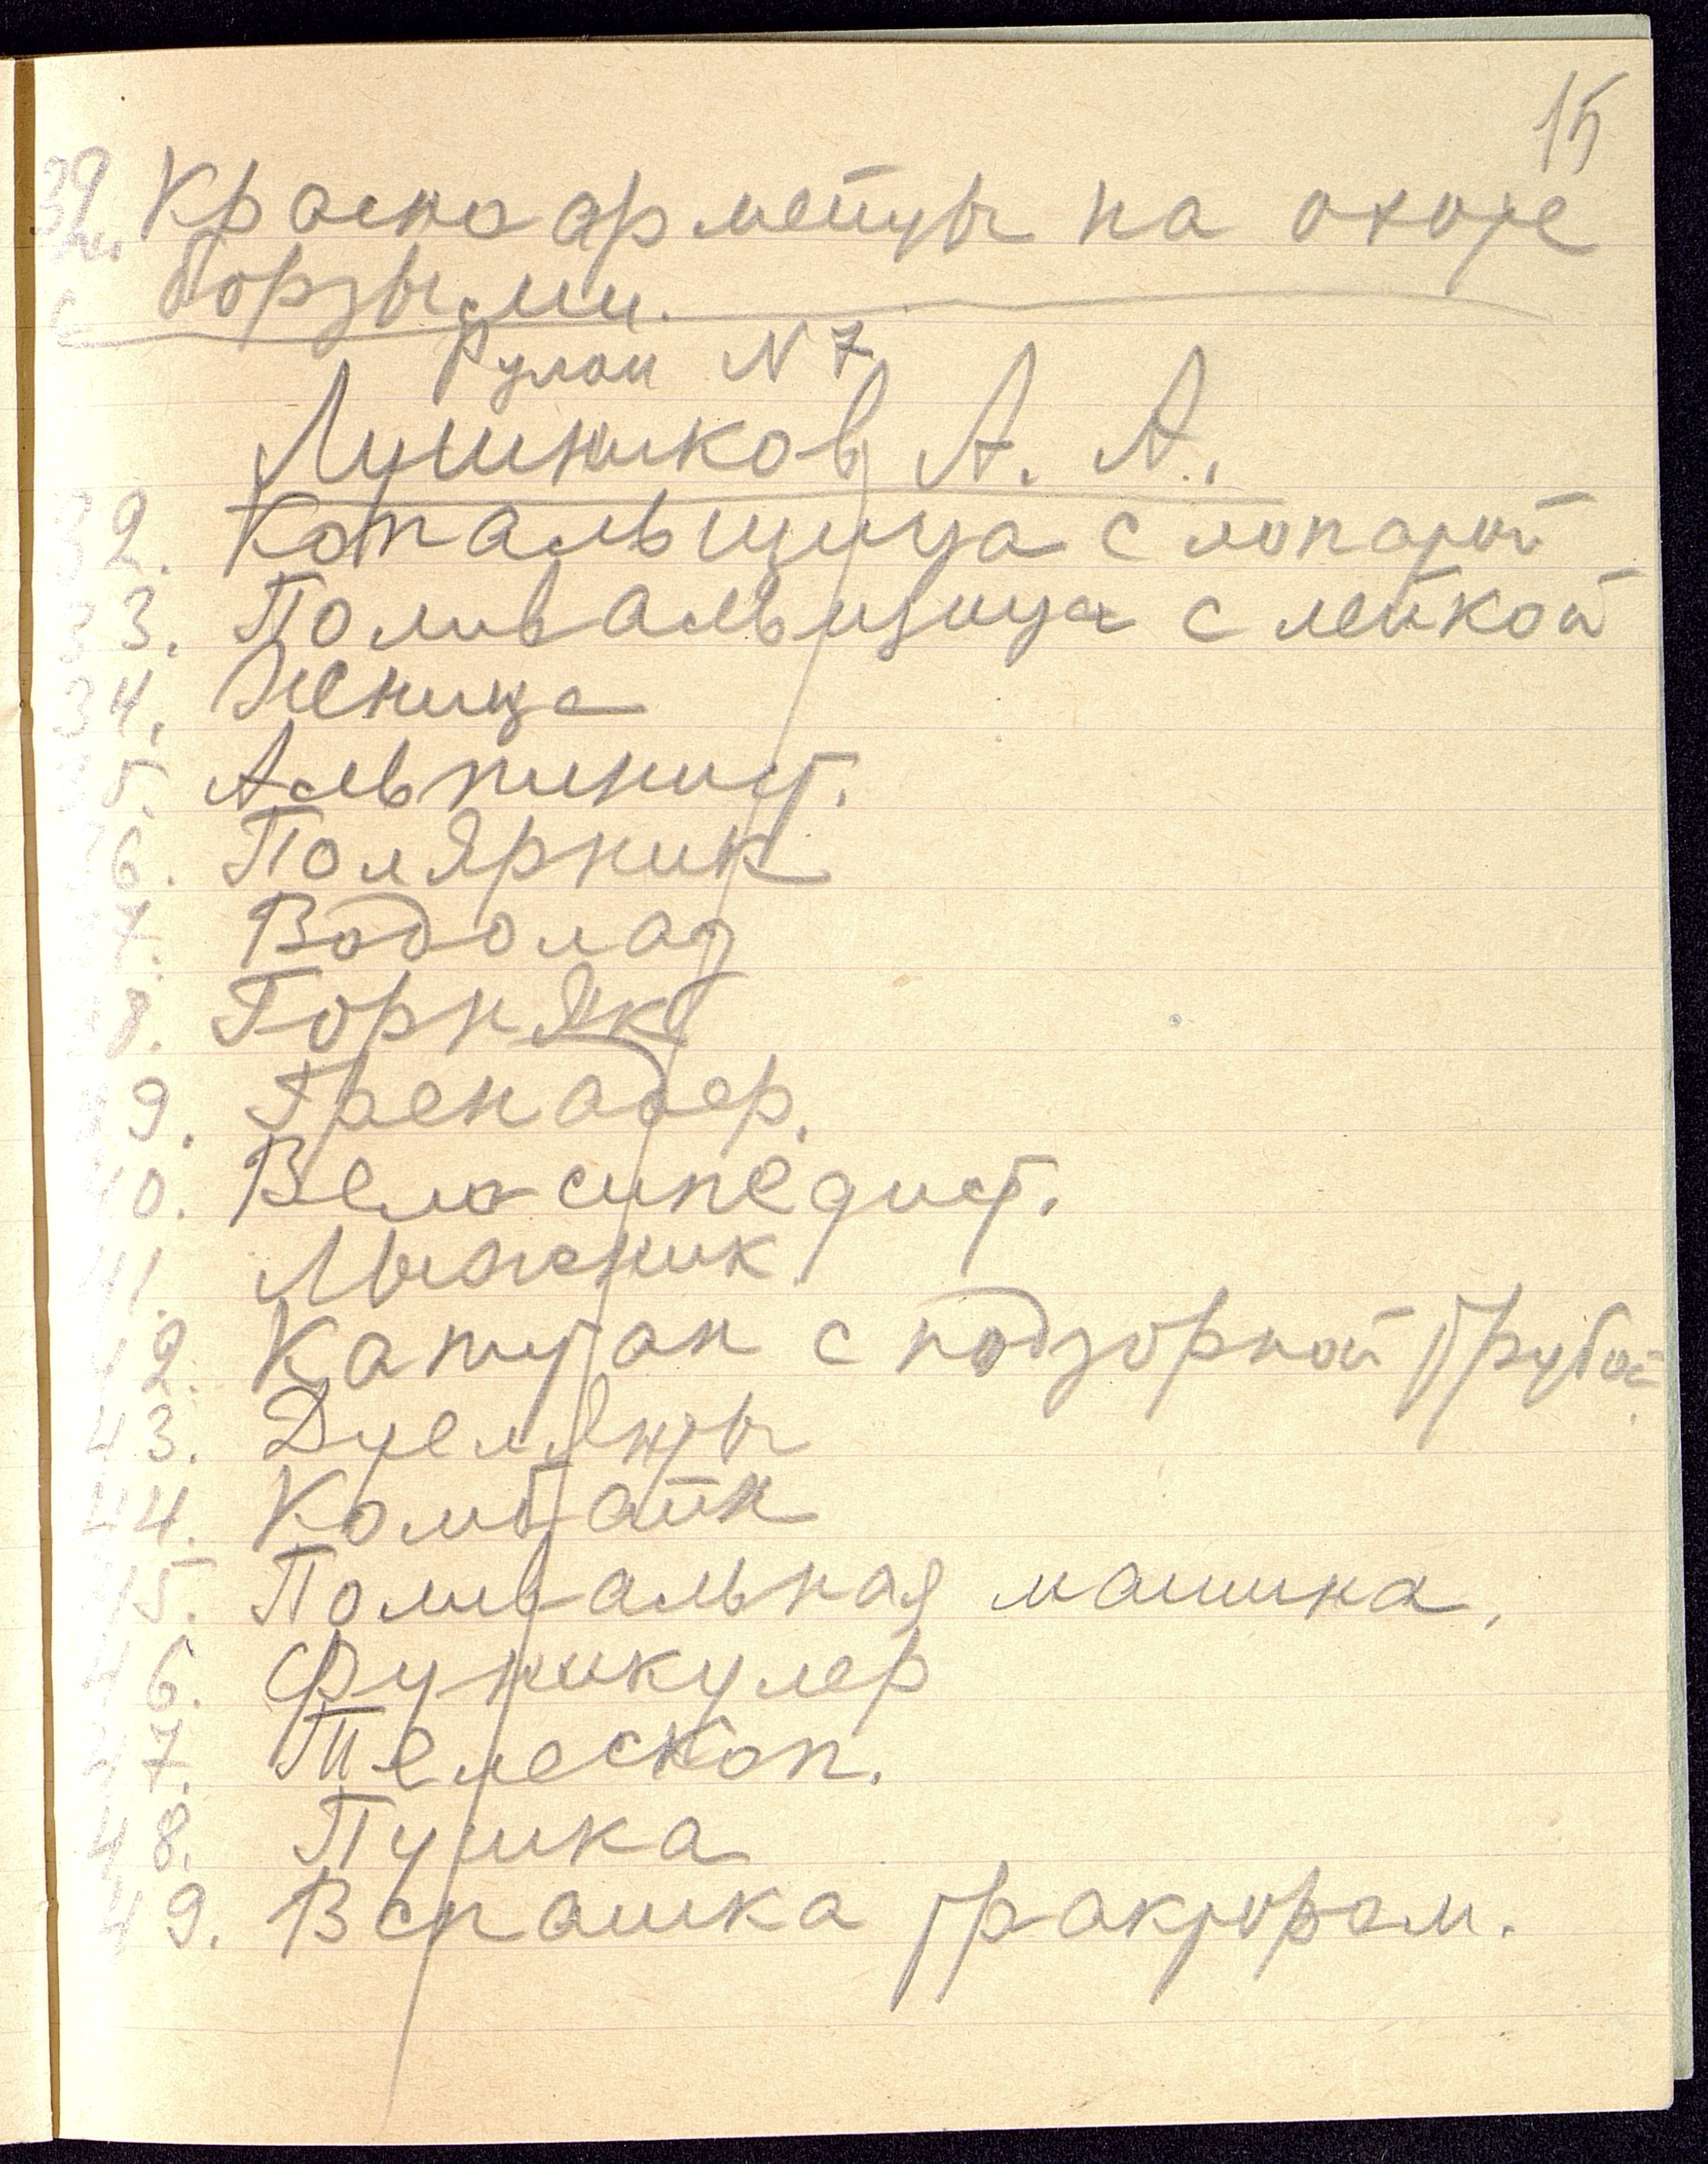 15
39 Красноармейцы на охоте
с борзыми.
Рулон N 7
Лушников А. А.
32. Копальщица с лопатой
33. Поливальщица с лейкой
34. Жница
35. Альпинист.
36. Полярник
37. Водолаз
38. Горняк
39. Гренадер.
40. Велосипедист.
41. Лыжник
42. Капитан с подзорной трубой.
43. Дуелянты
44. Комбайн
45. Поливальная машина.
46. Фуникулер
47. Телескоп.
48. Пушка
49. Вспашка трактором.